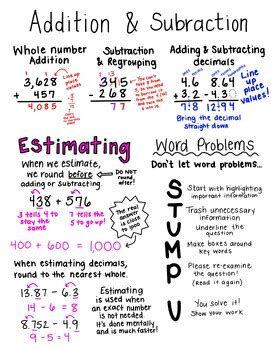 Addition & Subraction
Whole number
Addition
3,628
+ 457
4,085
Line
up
place
values!
Subtraction
& Regrouping
345
- 268
77
Adding & Subtracting
decimals
4.6
+ 3.2
7.8
8.64
- 4.30
Line up
place
values!
Bring the decimal
straight down
Estimating
When we estimate,
we round before
adding or subtracting.
DO NOT
round
after!
438 + 576
3 tells 4 to
stay the
same
7 tells the
5 to go up!
400 + 600 = 1,000
The real
answer
is close
to 1000
When estimating decimals,
round to the nearest whole.
13.87 - 6.3
14 - 6 = 8
8.752 - 4.9
9 - 5 = 4
Estimating
is used when
an exact number
is not needed.
It's done mentally
and is much faster!
Word Problems
Don't let word problems...
S Start with highlighting
important information
T Trash unnecessary
information
U Underline the
question
M Make boxes around
key words
P Please re-examine
the question!
(Read it again)
U You solve it!
Show your work